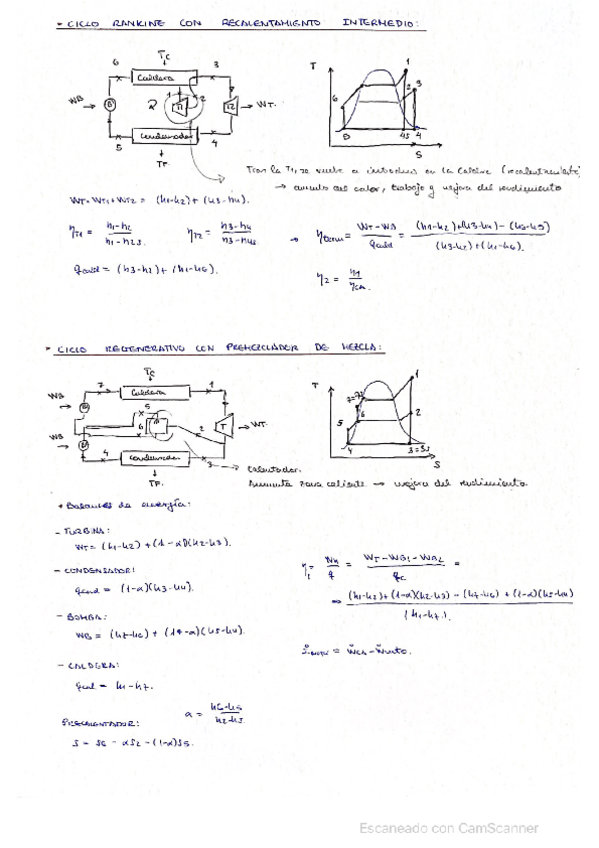 - CICLO RANKINE CON RECALENTAMIENTO INTERMEDIO:
Tc
6
Caldera
3
1
2
WB
B
T1
T2
WT.
Condensador
5
4
TF.
T
1
2
3
6
5
4s
4
S
Tras la T1, se vuelve a introducir en la Caldera (recalentamiento)
→ aumento del calor, trabajo y mejora del rendimiento
WT = WT1 + WT2 = (h1-h2) + (h3-h4).
ηT1 = h1-h2 / h1-h2s
ηT2 = h3-h4 / h3-h4s
→ ηterm = WT - WB / qcald = (h1-h2)+(h3-h4) - (h6-h5) / (h3-h2)+(h1-h6).
qcald = (h3-h2) + (h1-h6).
η2 = η1 / ηCA.
- CICLO REGENERATIVO CON PREMEZCLADOR DE MEZCLA:
Tc
7
Caldera
1
WB
B
5
6
2
T
WT.
WB
B
4
Condensador
3
TF.
T
1
7=7s
6
5
2
4
3=3s
S
Calentador.
Aumenta zona caliente → mejora del rendimiento.
+ Balances de energía:
- TURBINA:
WT = (h1-h2) + (1-α)(h2-h3).
- CONDENSADOR:
qcond = (1-α)(h3-h4).
- BOMBA:
WB = (h7-h6) + (1-α)(h5-h4).
- CALDERA:
qcal = h1-h7.
PRECALENTADOR:
α = h6-h5 / h2-h5
S = S6 - αS2 - (1-α)S5.
η1 = Wn / q = WT - WB1 - WB2 / qc =
⇒ (h1-h2) + (1-α)(h2-h3) - (h7-h6) + (1-α)(h5-h4) / (h1-h7).
Escaneado con CamScanner